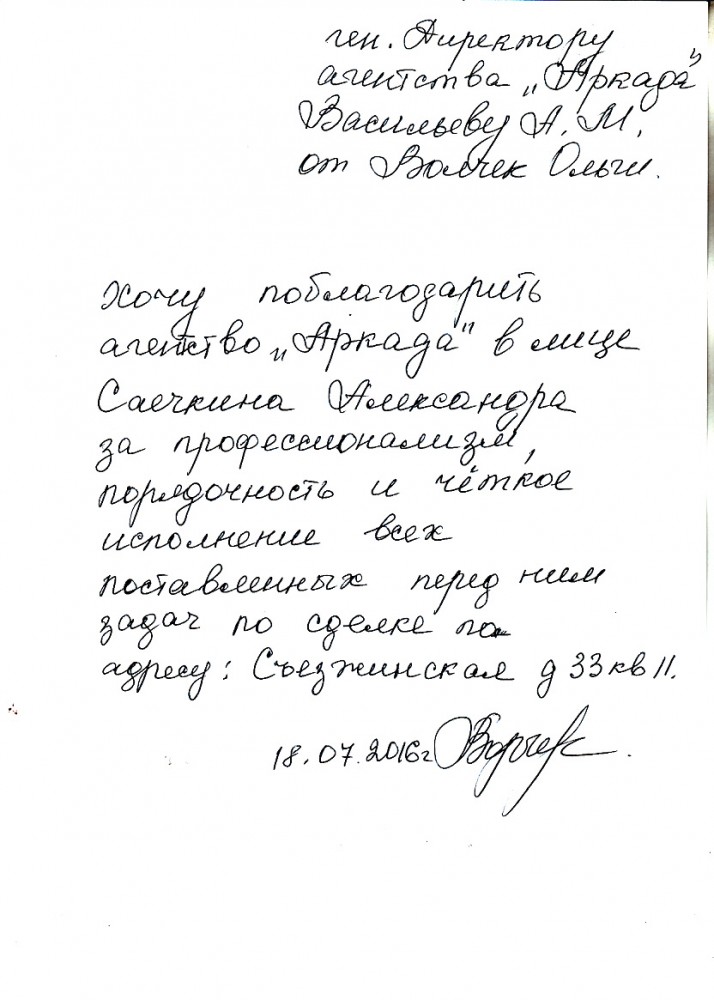 ген. Директору
агентства „Аркада"
Васильеву А. М.
от Волчек Ольги.
Хочу поблагодарить
агентство „Аркада" в лице
Саечкина Александра
за профессионализм,
порядочность и чёткое
исполнение всех
поставленных перед ним
задач по сделке по
адресу: Съезжинская д 33 кв 11.
18.07.2016г